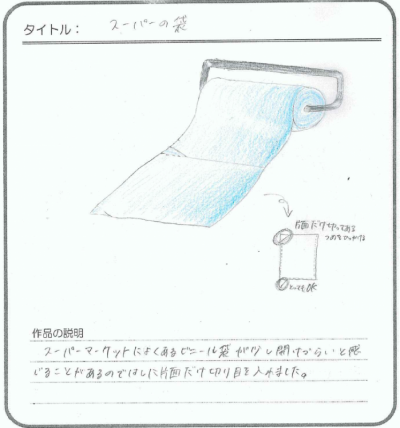 タイトル： スーパーの袋
片面だけ切ってある
つめをひっかける
とってもOK
作品の説明
スーパーマーケットによくあるビニール袋が少し開けづらいと感
じることがあるのではしに片面だけ切り目を入れました。